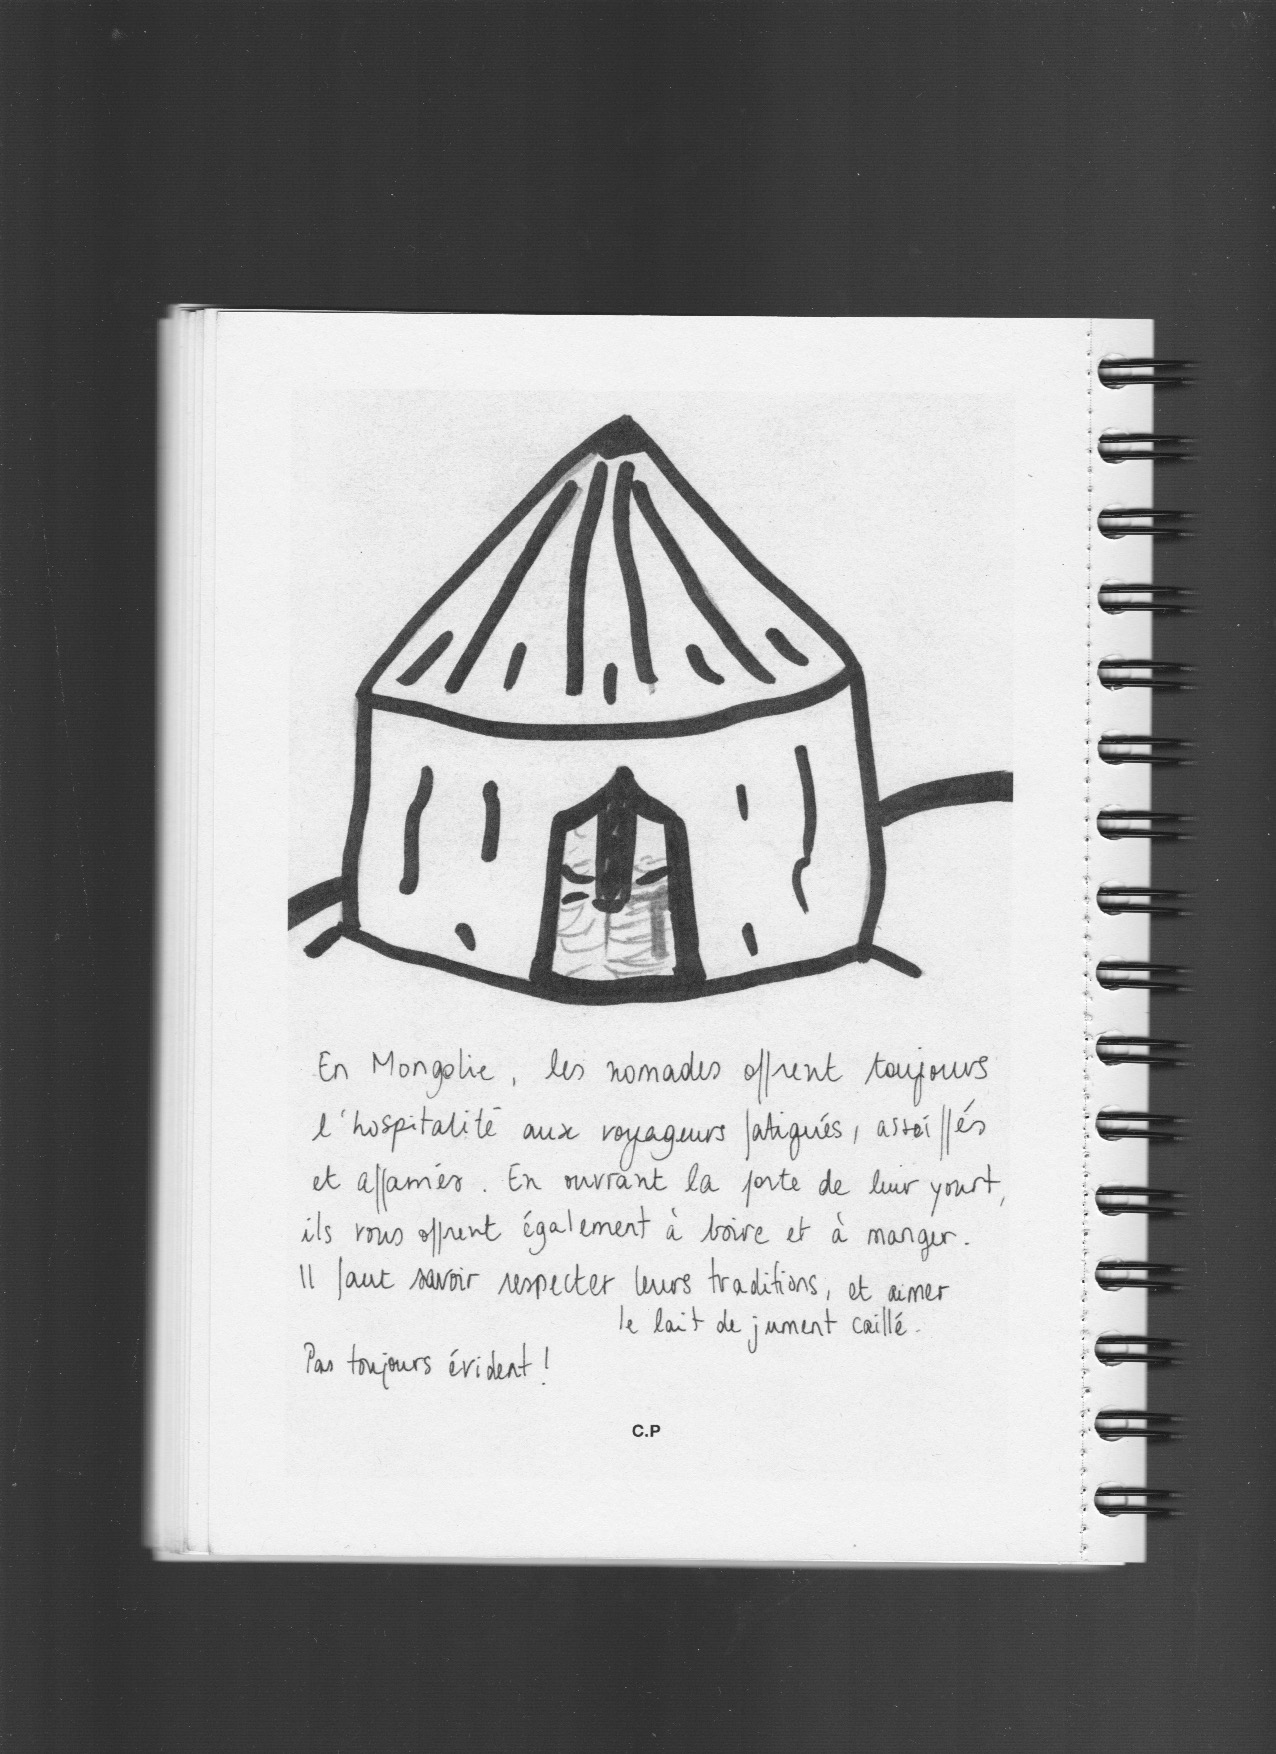 En Mongolie, les nomades offrent toujours
l'hospitalité aux voyageurs fatigués, assoiffés
et affamés. En ouvrant la porte de leur yourt,
ils vous offrent également à boire et à manger.
Il faut savoir respecter leurs traditions, et aimer
le lait de jument caillé.
Pas toujours évident !
C.P